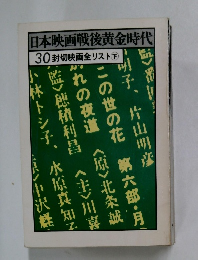 日本映画戦後黄金時代
30 封切映画全リスト㊦
子、片山明彦
この世の花 第六部・月
れの夜道 〈原〉北条誠
〈監〉穂積利昌 〈主〉川喜
小林トシ子、水原真知子
〈監〉中沢